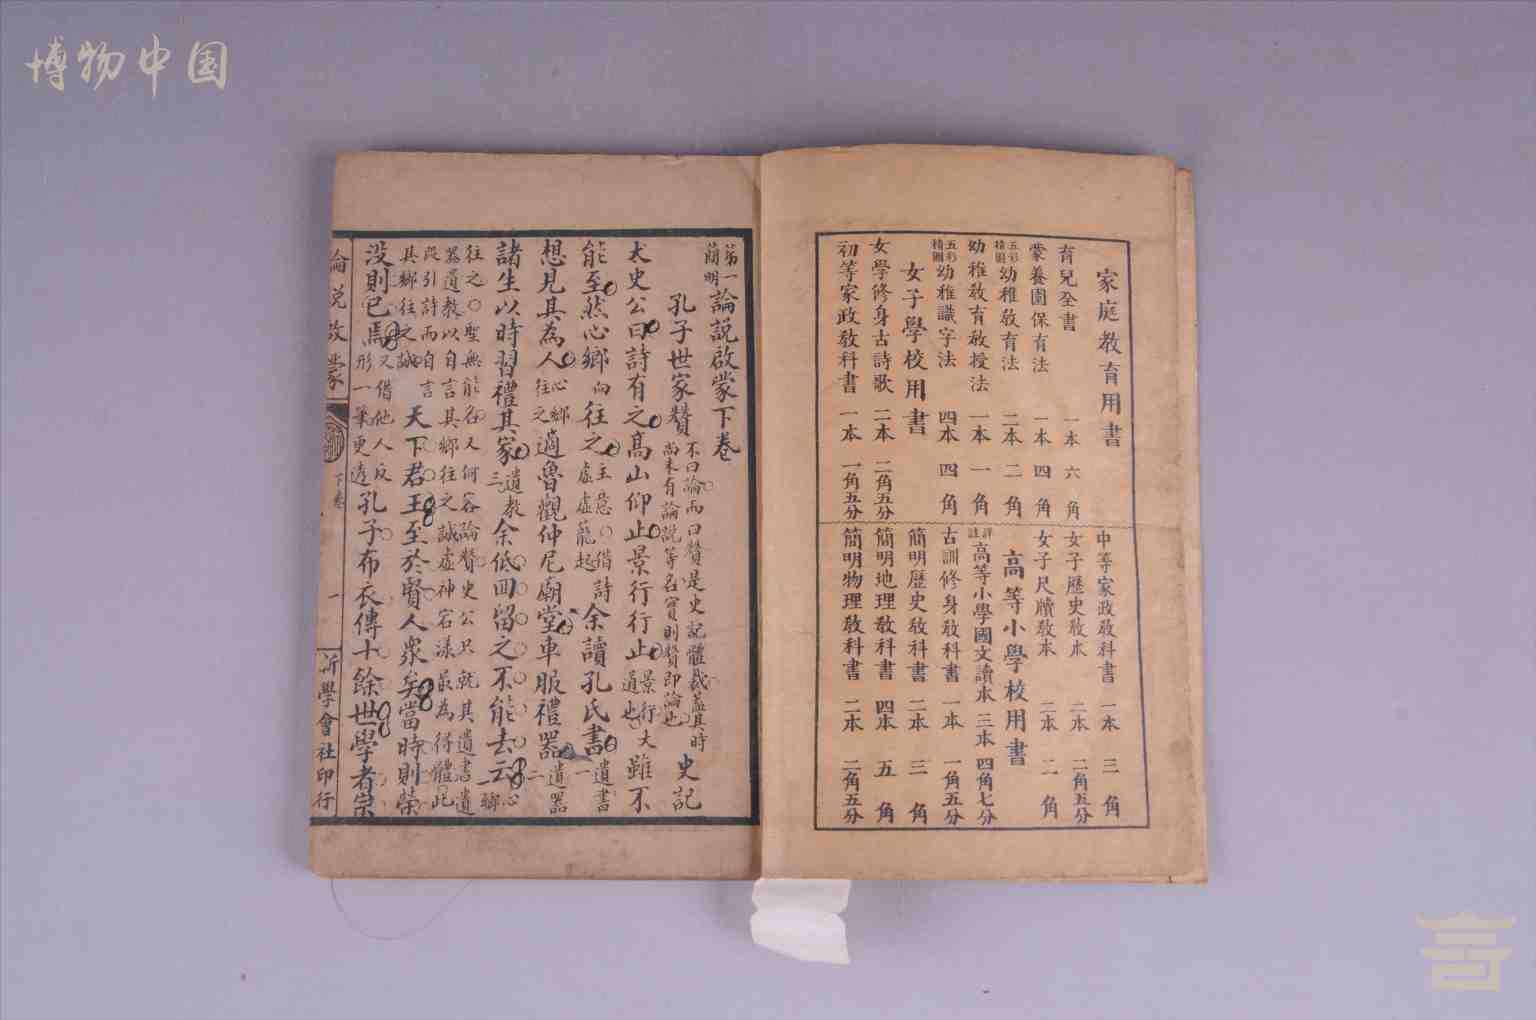 博物中国
家庭教育用書
育兒全書 一本 六角
蒙養園保育法 一本 四角
五彩精圖幼稚教育法 二本 二角
幼稚教育教授法 一本 一角
五彩精圖幼稚識字法 四本 四角
女子學校用書
女學修身古詩歌 二本 二角五分
初等家政教科書 一本 一角五分
中等家政教科書 一本 三角
女子歷史教本 二本 二角五分
女子尺牘教本 二本 二角
高等小學校用書
詳註高等小學國文讀本 三本 四角七分
古訓修身教科書 一本 一角五分
簡明歷史教科書 二本 三角
簡明地理教科書 四本 五角
簡明物理教科書 二本 二角五分
第一簡明論說啟蒙下卷
孔子世家贊 不曰論而曰贊是史記體裁蓋其時尚未有論說等名實則贊即論也 史記
太史公曰詩有之高山仰止景行行止景行大道也雖不
能至然心鄉向往之主意○借詩虛虛籠起余讀孔氏書遺書一
想見其為人心鄉往之適魯觀仲尼廟堂車服禮器遺器二
諸生以時習禮其家遺教三余低回留之不能去云心鄉
往之○聖無能名又何容論贊史公只就其遺書遺
器遺教以自言其鄉往之誠虛神宕漾最為得體此
段引詩而自言
其鄉往之誠天下君王至於賢人衆矣當時則榮
沒則已焉又借他人反形一筆更透孔子布衣傳十餘世學者宗
論說啟蒙
下卷
一
新學會社印行